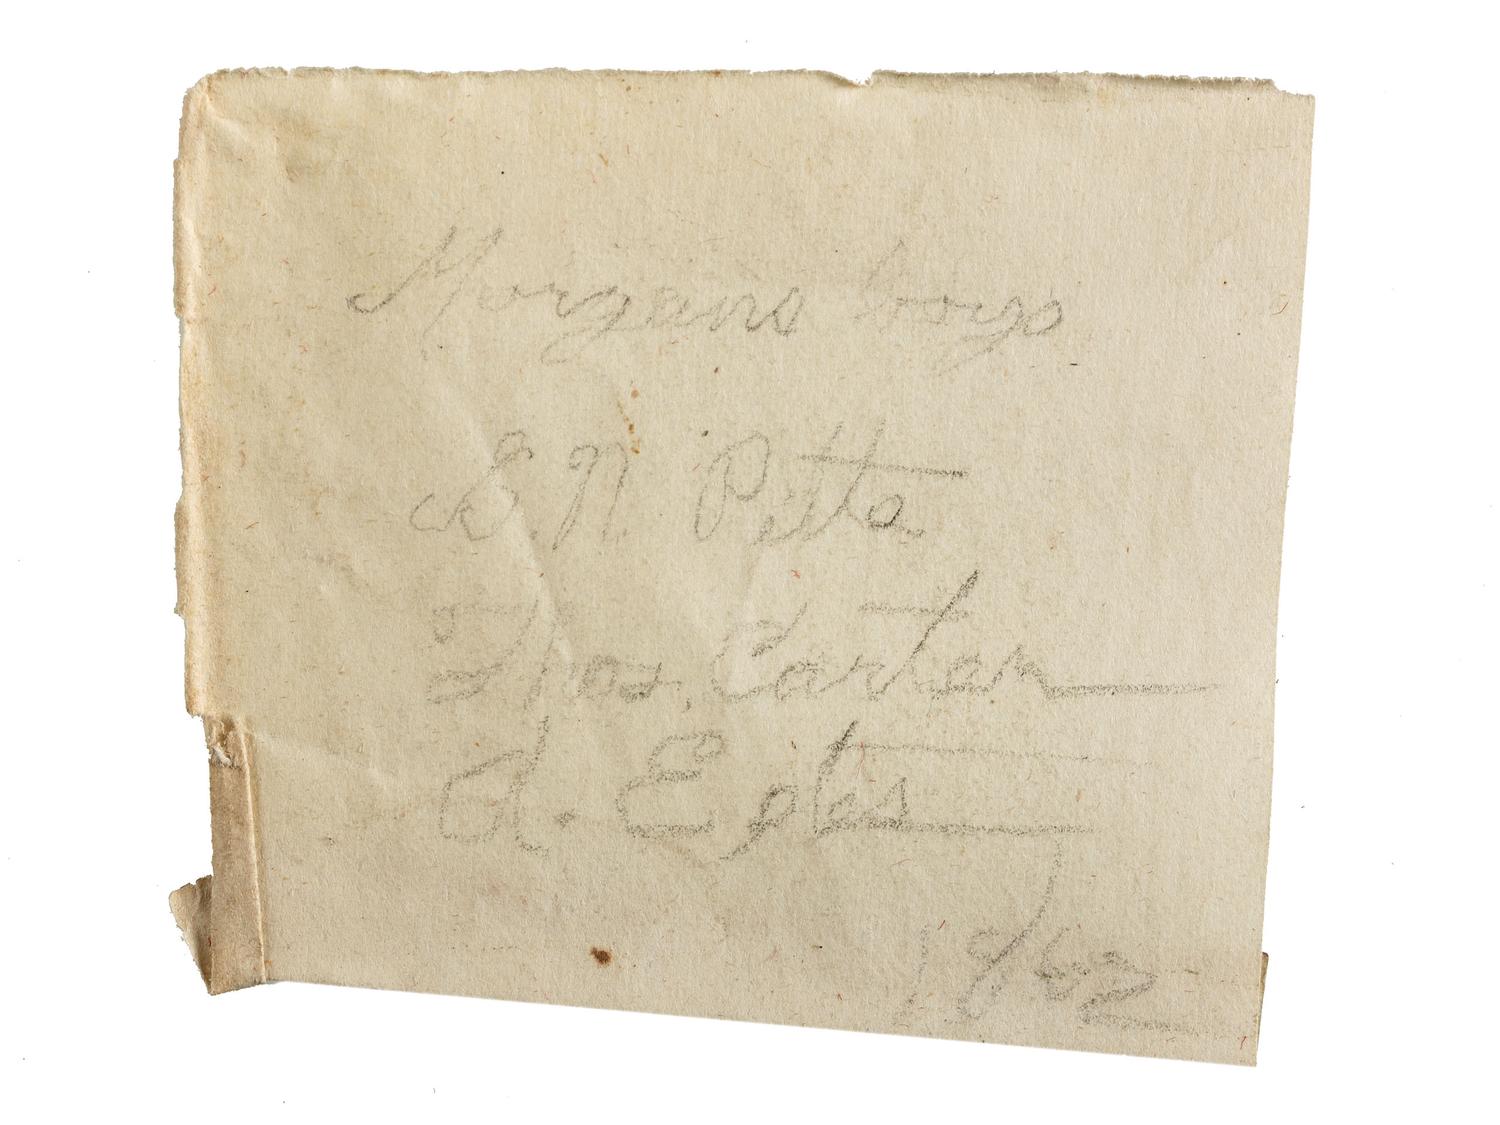 Morgans boys
S. N. Pitts
Thos. Carter
d. Estes
1862